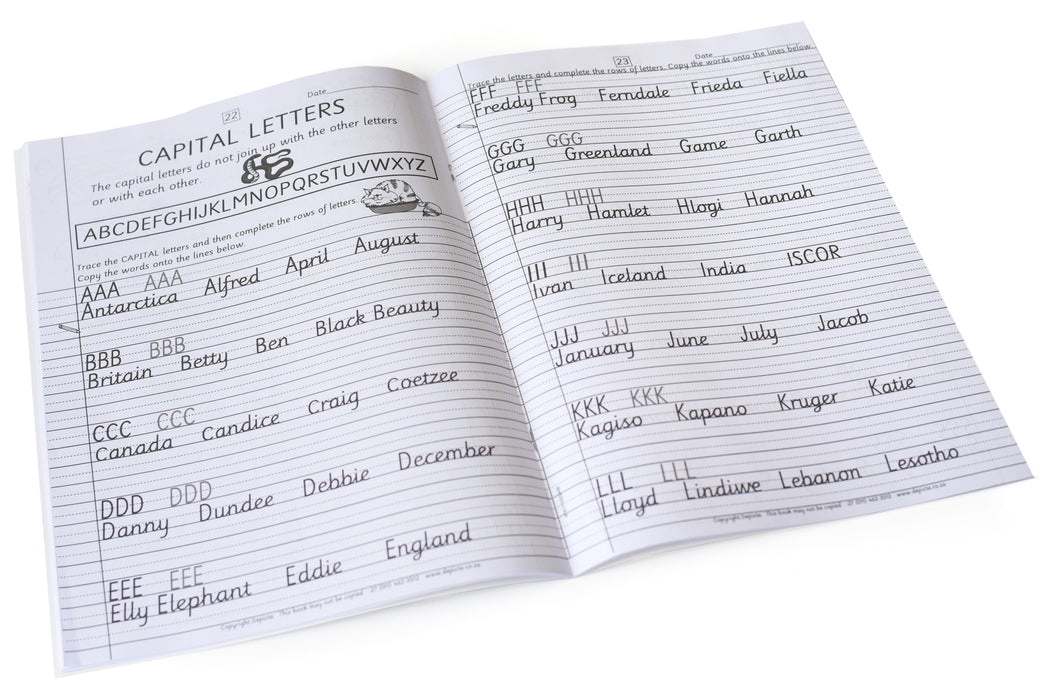 22
Date
CAPITAL LETTERS
The capital letters do not join up with the other letters
or with each other.
ABCDEFGHIJKLMNOPQRSTUVWXYZ
Trace the CAPITAL letters and then complete the rows of letters.
Copy the words onto the lines below.
AAA AAA
Antarctica Alfred April August
BBB BBB
Britain Betty Ben Black Beauty
CCC CCC
Canada Candice Craig Coetzee
DDD DDD
Danny Dundee Debbie December
EEE EEE
Elly Elephant Eddie England
Copyright Depicta This book may not be copied
23
Date
Trace the letters and complete the rows of letters. Copy the words onto the lines below.
FFF FFF
Freddy Frog Ferndale Frieda Fiella
GGG GGG
Gary Greenland Game Garth
HHH HHH
Harry Hamlet Hlogi Hannah
III III
Ivan Iceland India ISCOR
JJJ JJJ
January June July Jacob
KKK KKK
Kagiso Kapano Kruger Katie
LLL LLL
Lloyd Lindiwe Lebanon Lesotho
Copyright Depicta This book may not be copied